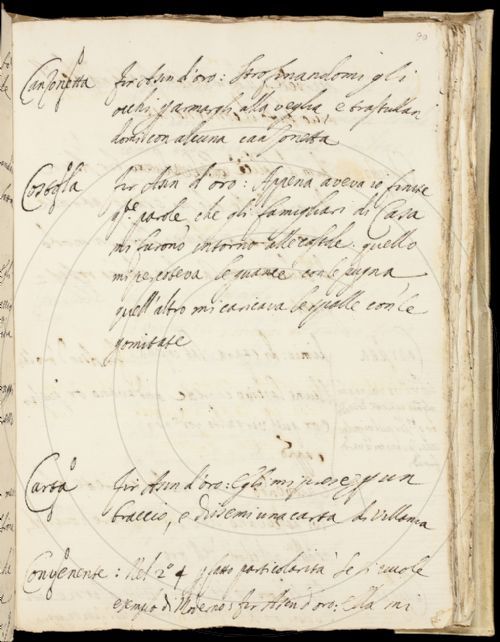 90
Canzonetta Fir. Asin d'oro: Strofinandomi gli
occhi p armargli alla veglia e trastullan
domi con alcuna canzonetta
Costola Fir Asin d'oro: Appena aveva io finite
qste parole che gli famigliari di Casa
mi furono intorno alle costole. quello
mi percoteva le guance con le pugna
quell'altro mi caricava le spalle con le
gomitate
Carta Fir Asin d'oro: Egli mi prese p un
braccio, e dissemi una carta di Villania
Convenente: Nel 2o 4 particolarità se si vuole
esempo di Moderno: Fir Asin d'oro: Ella mi